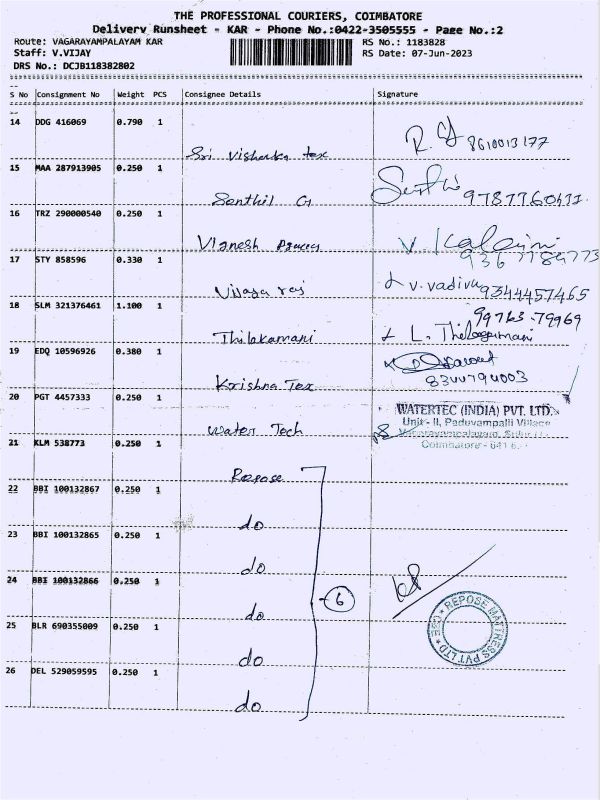 THE PROFESSIONAL COURIERS, COIMBATORE
Delivery Runsheet - KAR - Phone No.:0422-3505555 - Page No.:2
Route: VAGARAYAMPALAYAM KAR RS No.: 1183828
Staff: V.VIJAY RS Date: 07-Jun-2023
DRS No.: DCJB118382802
S No Consignment No Weight PCS Consignee Details Signature
14 DDG 416069 0.790 1
Sri Vishaka tex 8610013177
15 MAA 287913905 0.250 1
Senthil G Senthil
16 TRZ 290000540 0.250 1
Vignesh Process V. Kalaini
17 STY 858596 0.330 1
Vijaya raj V. vadivu 9344457465
18 SLM 321376461 1.100 1 99763 79969
Thilakamani L. Thilagamani
19 EDQ 10596926 0.380 1
Krishna Tex
20 PGT 4457333 0.250 1
Water Tech
WATERTEC (INDIA) PVT. LTD.
Unit - II, Paduvampalli Village
Coimbatore - 641
21 KLM 538773 0.250 1
Repose
22 BBI 100132867 0.250 1
do
23 BBI 100132865 0.250 1
do
24 BBI 100132866 0.250 1
do 6
25 BLR 690355009 0.250 1
do
REPOSE MATTRESS PVT LTD
CBE
26 DEL 529059595 0.250 1
do